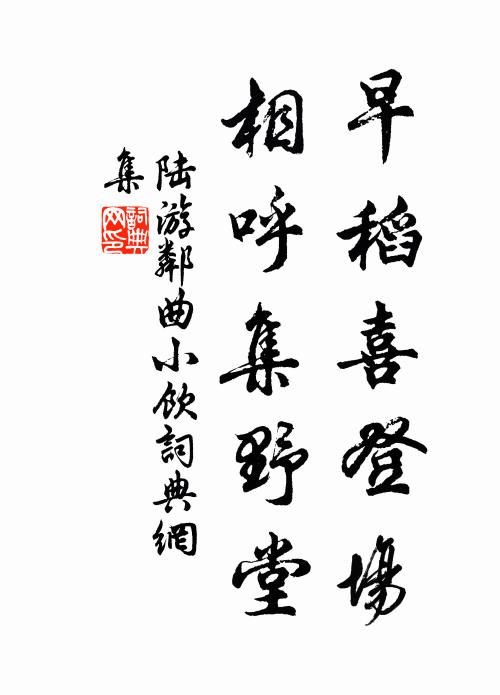 早稻喜登場
相呼集野堂
陆游鄰曲小飲詞典網
集
詞典網印